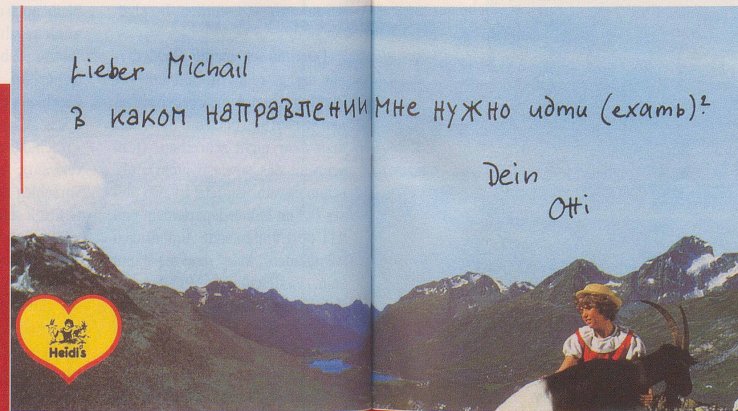 Lieber Michail
в каком направлении мне нужно идти (ехать)?
Dein
Otti
Heidi's